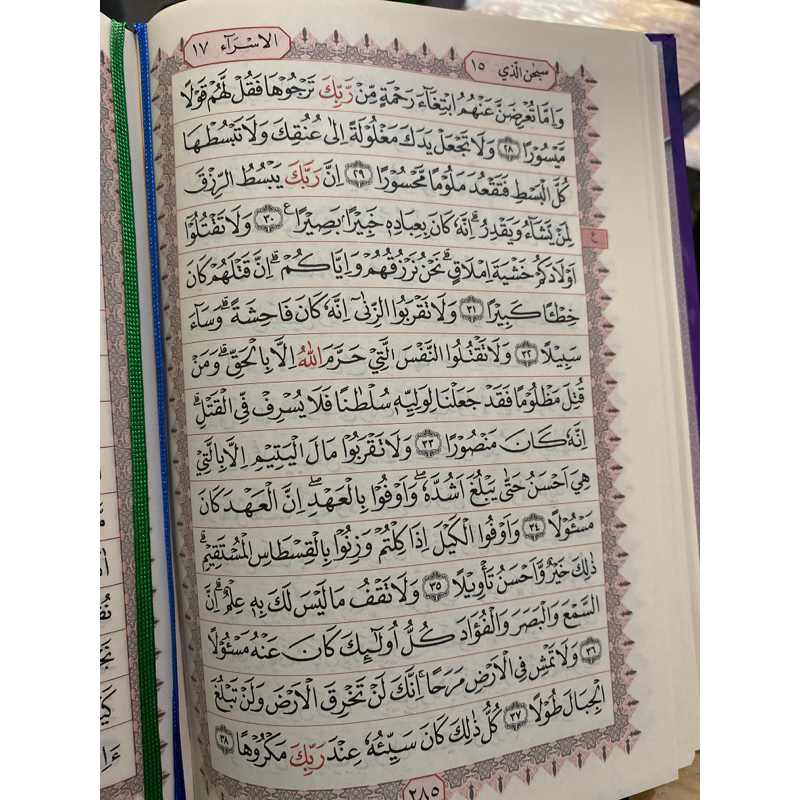 سبحٰن الّذي ١٥
الاسرآء ١٧
وَاِمَّا تُعْرِضَنَّ عَنْهُمُ ابْتِغَآءَ رَحْمَةٍ مِّنْ رَّبِّكَ تَرْجُوْهَا فَقُلْ لَّهُمْ قَوْلًا
مَّيْسُوْرًا ٢٨ وَلَا تَجْعَلْ يَدَكَ مَغْلُوْلَةً اِلٰى عُنُقِكَ وَلَا تَبْسُطْهَا
كُلَّ الْبَسْطِ فَتَقْعُدَ مَلُوْمًا مَّحْسُوْرًا ٢٩ اِنَّ رَبَّكَ يَبْسُطُ الرِّزْقَ
لِمَنْ يَّشَآءُ وَيَقْدِرُ ۗ اِنَّهٗ كَانَ بِعِبَادِهٖ خَبِيْرًاۢ بَصِيْرًا ࣖ ٣٠ وَلَا تَقْتُلُوْٓا
ع
اَوْلَادَكُمْ خَشْيَةَ اِمْلَاقٍ ۗ نَحْنُ نَرْزُقُهُمْ وَاِيَّاكُمْ ۗ اِنَّ قَتْلَهُمْ كَانَ
خِطْـًٔا كَبِيْرًا ٣١ وَلَا تَقْرَبُوا الزِّنٰىٓ اِنَّهٗ كَانَ فَاحِشَةً ۗ وَسَآءَ
سَبِيْلًا ٣٢ وَلَا تَقْتُلُوا النَّفْسَ الَّتِيْ حَرَّمَ اللّٰهُ اِلَّا بِالْحَقِّ ۗ وَمَنْ
قُتِلَ مَظْلُوْمًا فَقَدْ جَعَلْنَا لِوَلِيِّهٖ سُلْطٰنًا فَلَا يُسْرِفْ فِّى الْقَتْلِ ۗ
اِنَّهٗ كَانَ مَنْصُوْرًا ٣٣ وَلَا تَقْرَبُوْا مَالَ الْيَتِيْمِ اِلَّا بِالَّتِيْ
هِيَ اَحْسَنُ حَتّٰى يَبْلُغَ اَشُدَّهٗ ۖ وَاَوْفُوْا بِالْعَهْدِ ۖ اِنَّ الْعَهْدَ كَانَ
مَسْـُٔوْلًا ٣٤ وَاَوْفُوا الْكَيْلَ اِذَا كِلْتُمْ وَزِنُوْا بِالْقِسْطَاسِ الْمُسْتَقِيْمِ ۗ
ذٰلِكَ خَيْرٌ وَّاَحْسَنُ تَأْوِيْلًا ٣٥ وَلَا تَقْفُ مَا لَيْسَ لَكَ بِهٖ عِلْمٌ ۗ اِنَّ
السَّمْعَ وَالْبَصَرَ وَالْفُؤَادَ كُلُّ اُولٰۤىِٕكَ كَانَ عَنْهُ مَسْـُٔوْلًا
٣٦ وَلَا تَمْشِ فِى الْاَرْضِ مَرَحًا ۚ اِنَّكَ لَنْ تَخْرِقَ الْاَرْضَ وَلَنْ تَبْلُغَ
الْجِبَالَ طُوْلًا ٣٧ كُلُّ ذٰلِكَ كَانَ سَيِّئُهٗ عِنْدَ رَبِّكَ مَكْرُوْهًا ٣٨
٢٨٥